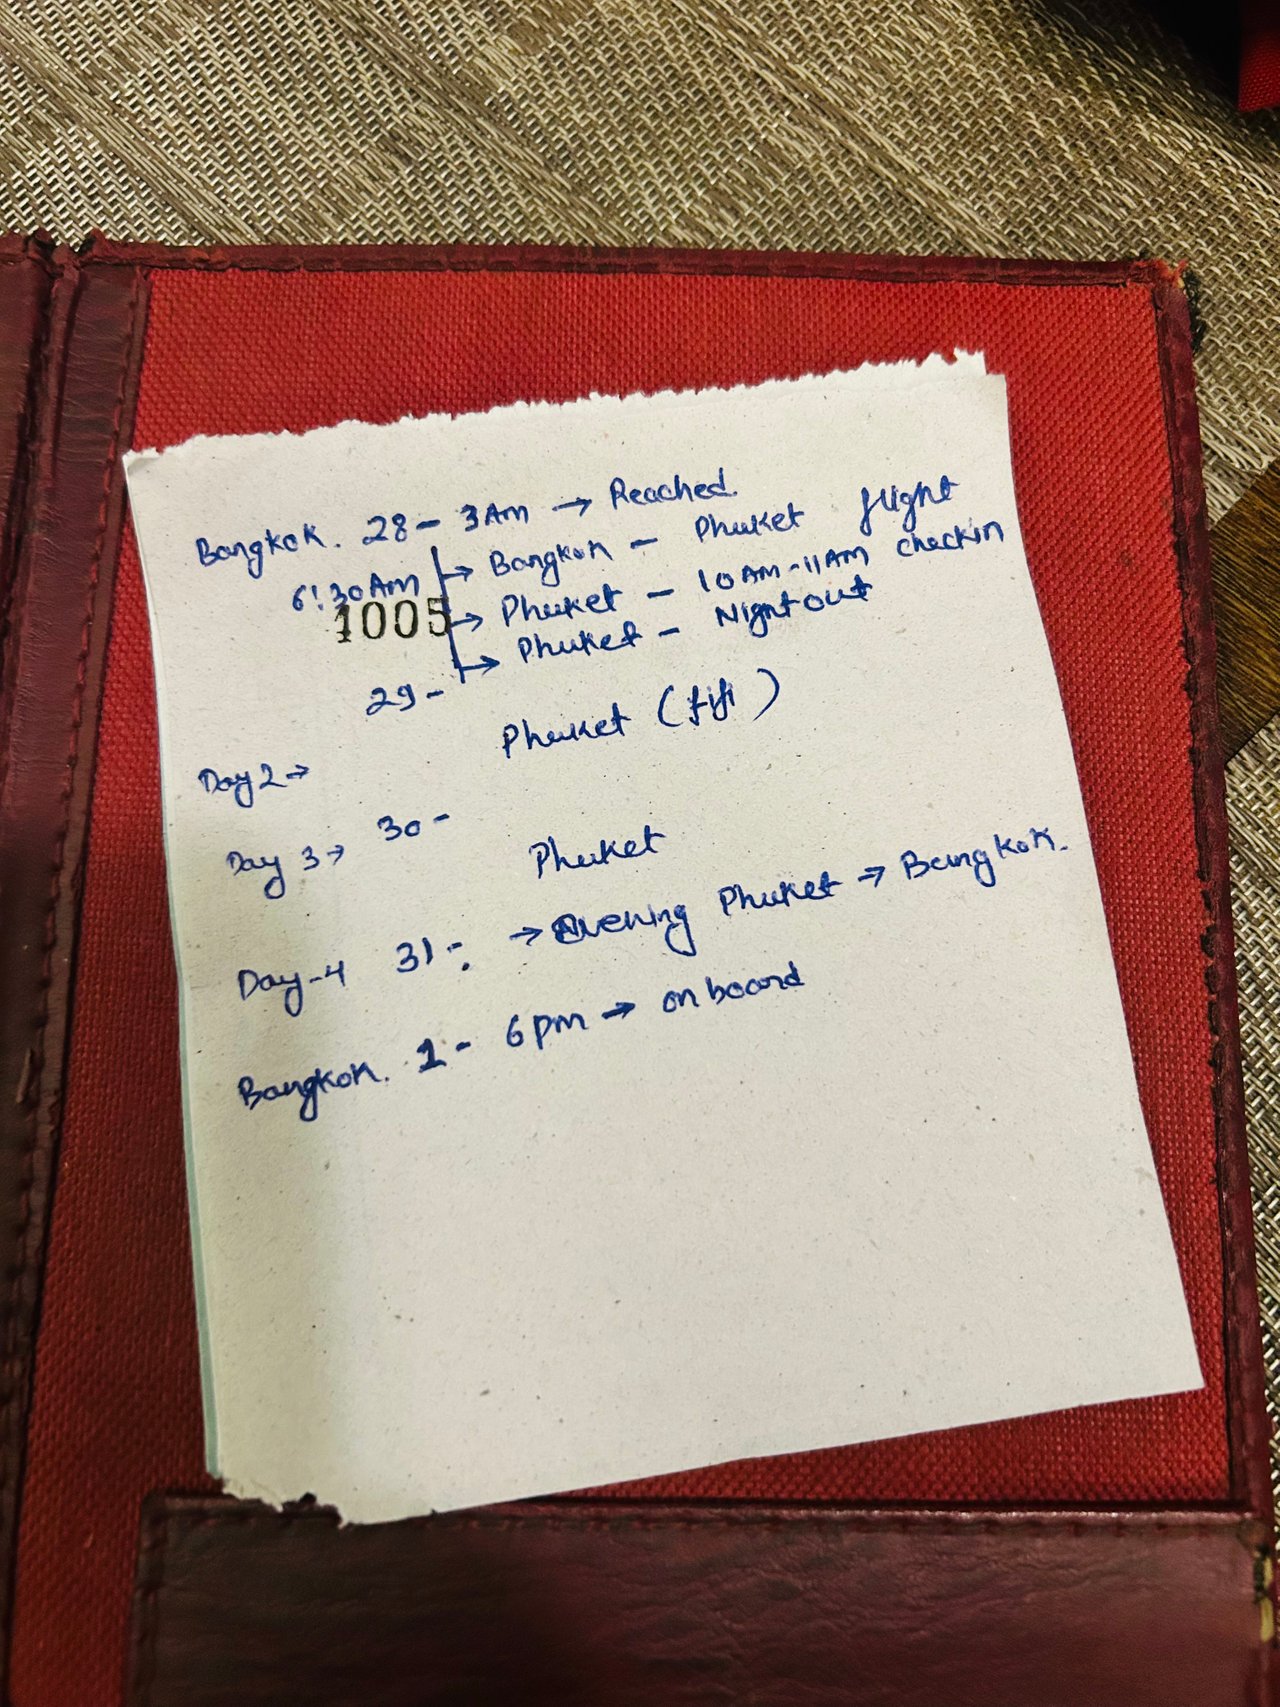 Bangkok. 28 - 3 Am → Reached.
6:30 Am → Bangkok - Phuket flight
1005 → Phuket - 10 AM - 11 AM checkin
→ Phuket - Night out
29 -
Phuket (fifi)
Day 2 →
Day 3 → 30 -
Phuket
Day - 4 31 - → Evening Phuket → Bangkok.
Bangkok. 1 - 6 pm → on board